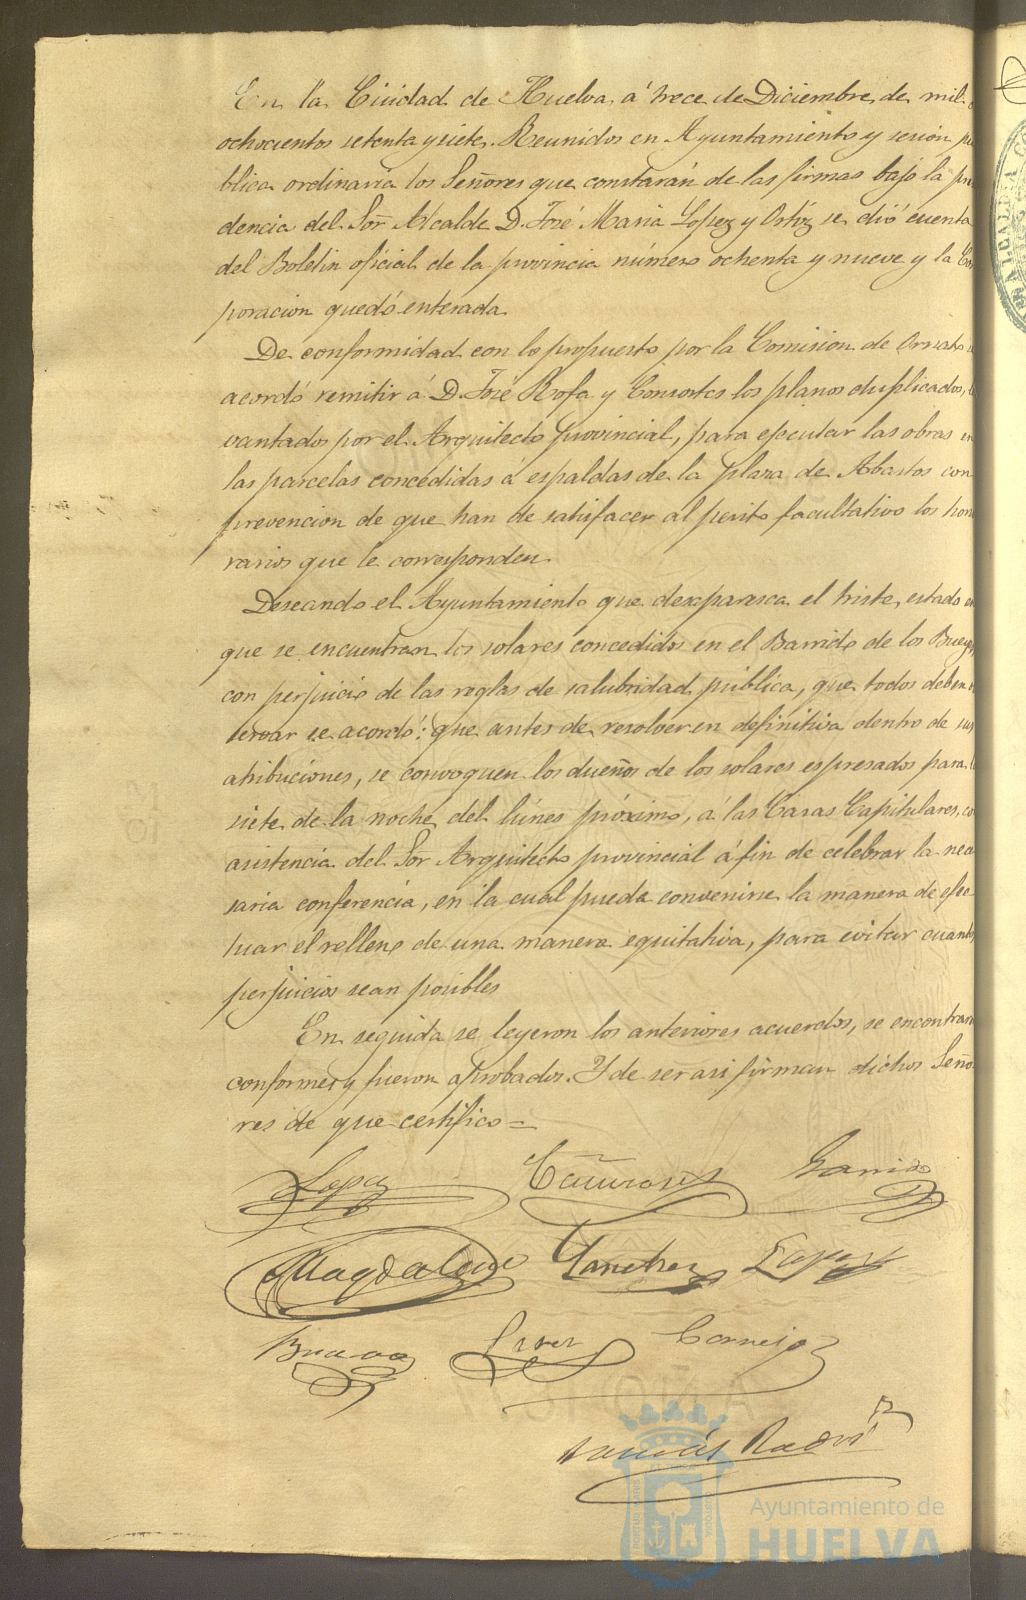 En la Ciudad de Huelva á trece de Diciembre de mil
ochocientos setenta y siete. Reunidos en Ayuntamiento y sesion pu
blica ordinaria los Señores que constarán de las firmas bajo la pre
dencia del Sor Alcalde D. José Maria Lopez y Ortiz se dió cuenta
del Boletin oficial de la provincia número ochenta y nueve y la Cor
poracion quedó enterada
De conformidad con lo propuesto por la Comision de Ornato
acordó remitir á D. José Rofa y Consortes los planos duplicados, le
vantados por el Arquitecto provincial, para ejecutar las obras en
las parcelas concedidas á espaldas de la plaza de Abastos con
prevencion de que han de satisfacer al perito facultativo los hono
rarios que le corresponden
Deseando el Ayuntamiento que desaparesca el triste estado en
que se encuentran los solares concedidos en el Barrido de los Bueyes
con perjuicio de las reglas de salubridad pública, que todos deben
servar se acordó: que antes de resolver en definitiva dentro de sus
atribuciones, se convoquen los dueños de los solares espresados para
siete de la noche del lúnes próximo, á las Casas Capitulares, co
asistencia del Sor Arquitecto provincial á fin de celebrar la nece
saria conferencia, en la cual pueda convenirse la manera de efec
tuar el relleno de una manera equitativa, para evitar cuantos
perjuicios sean posibles
En seguida se leyeron los anteriores acuerdos, se encontraron
conformes y fueron aprobados. Y de ser asi firman dichos Seño
res de que certifico =
Lopez Garrido
Magdalena Sanchez Lopez
Bravo Cornejo
Tomás
Ayuntamiento de
HUELVA